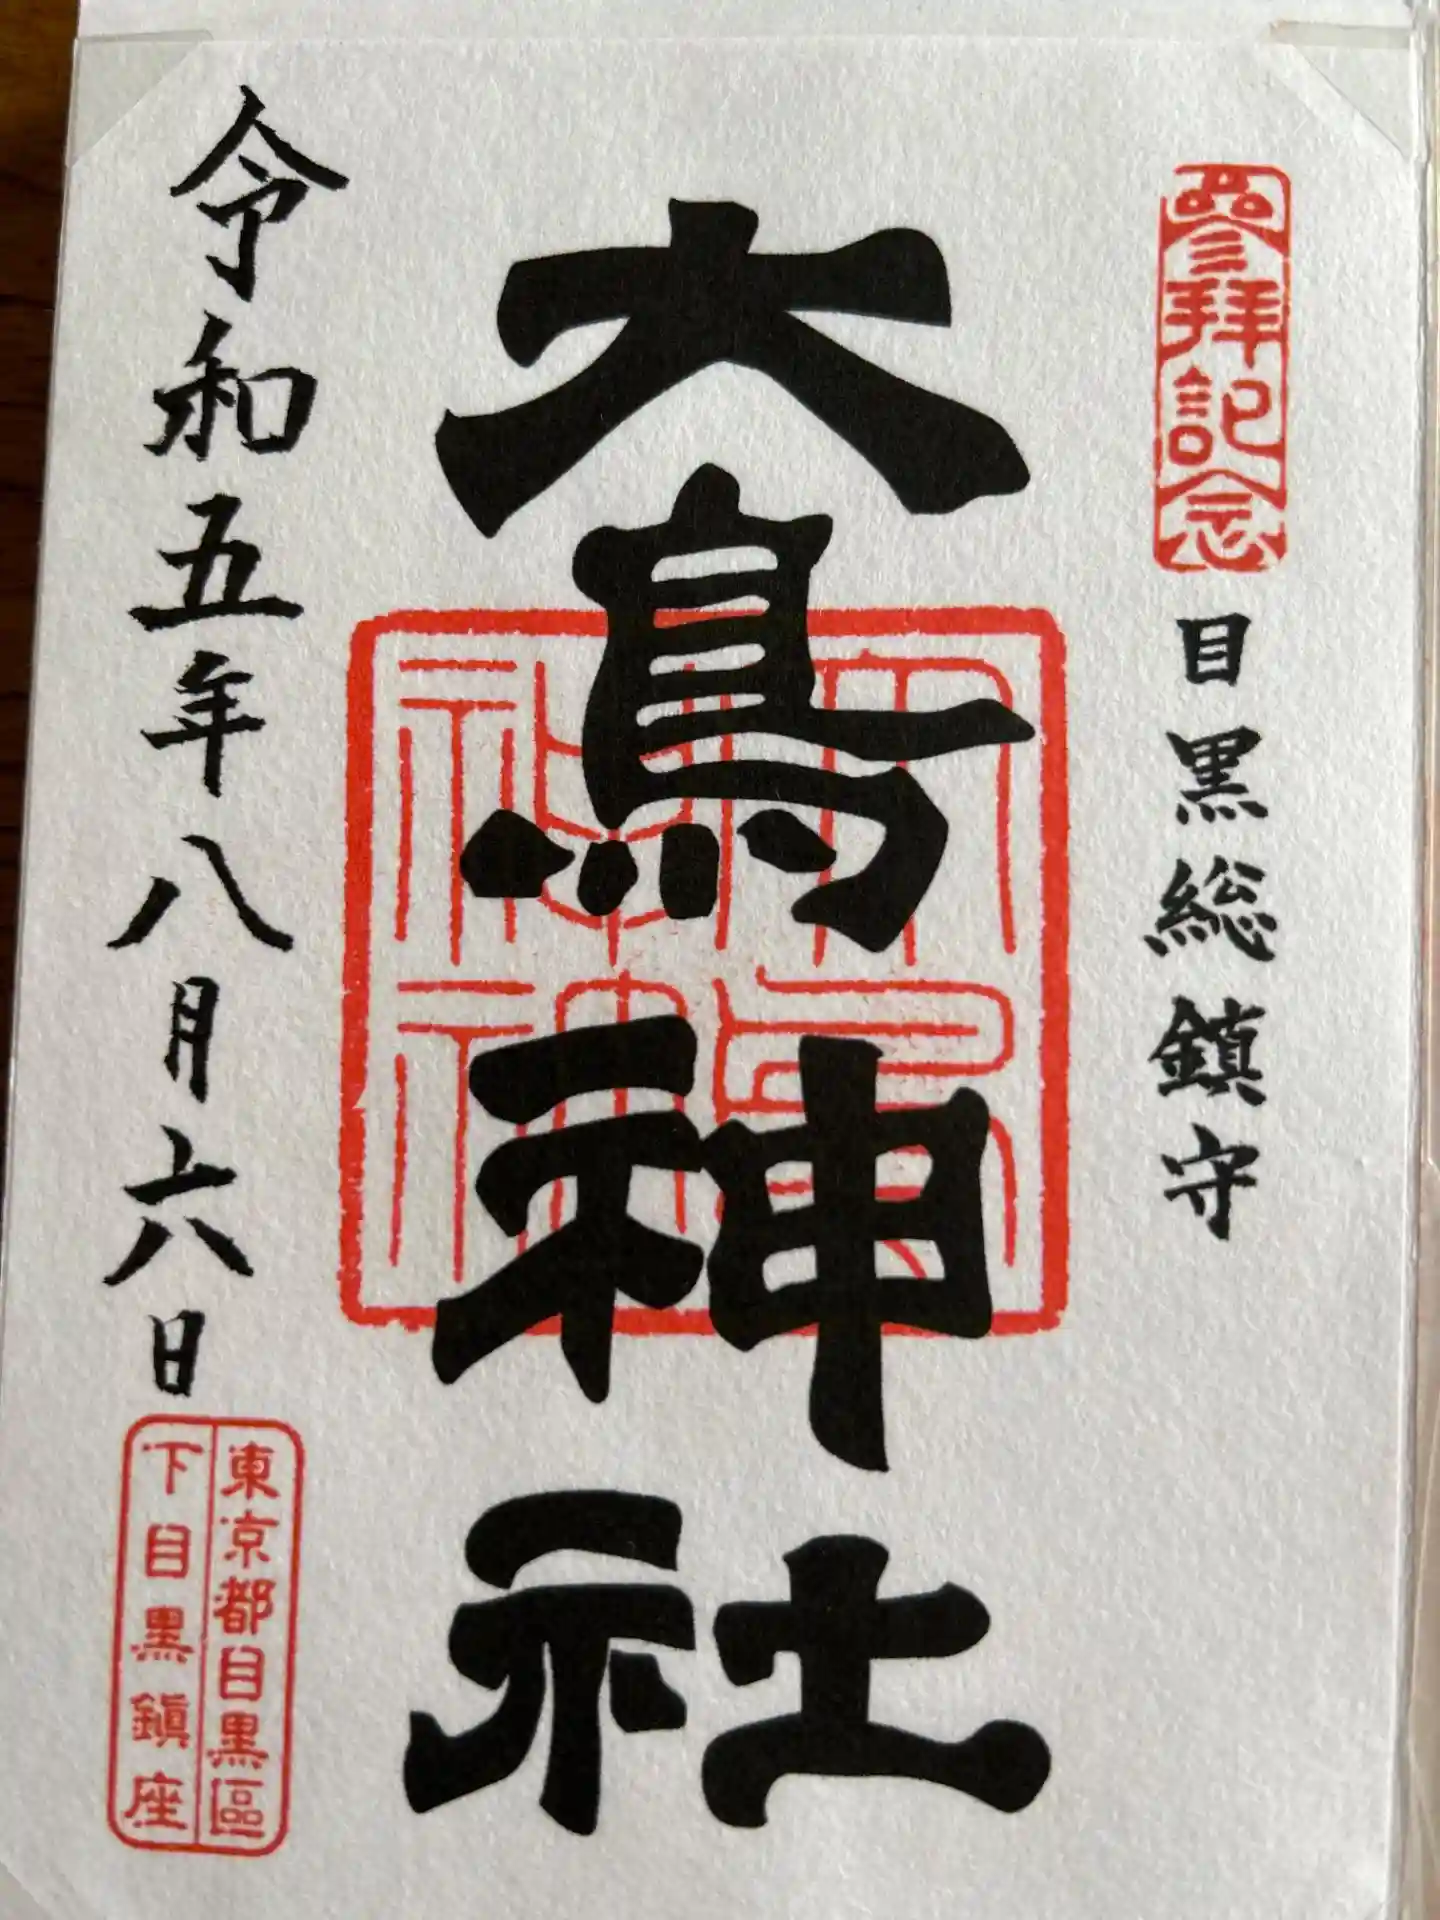 參拜記念
目黒総鎮守
大鳥神社
令和五年八月六日
東京都目黒區
下目黒鎮座